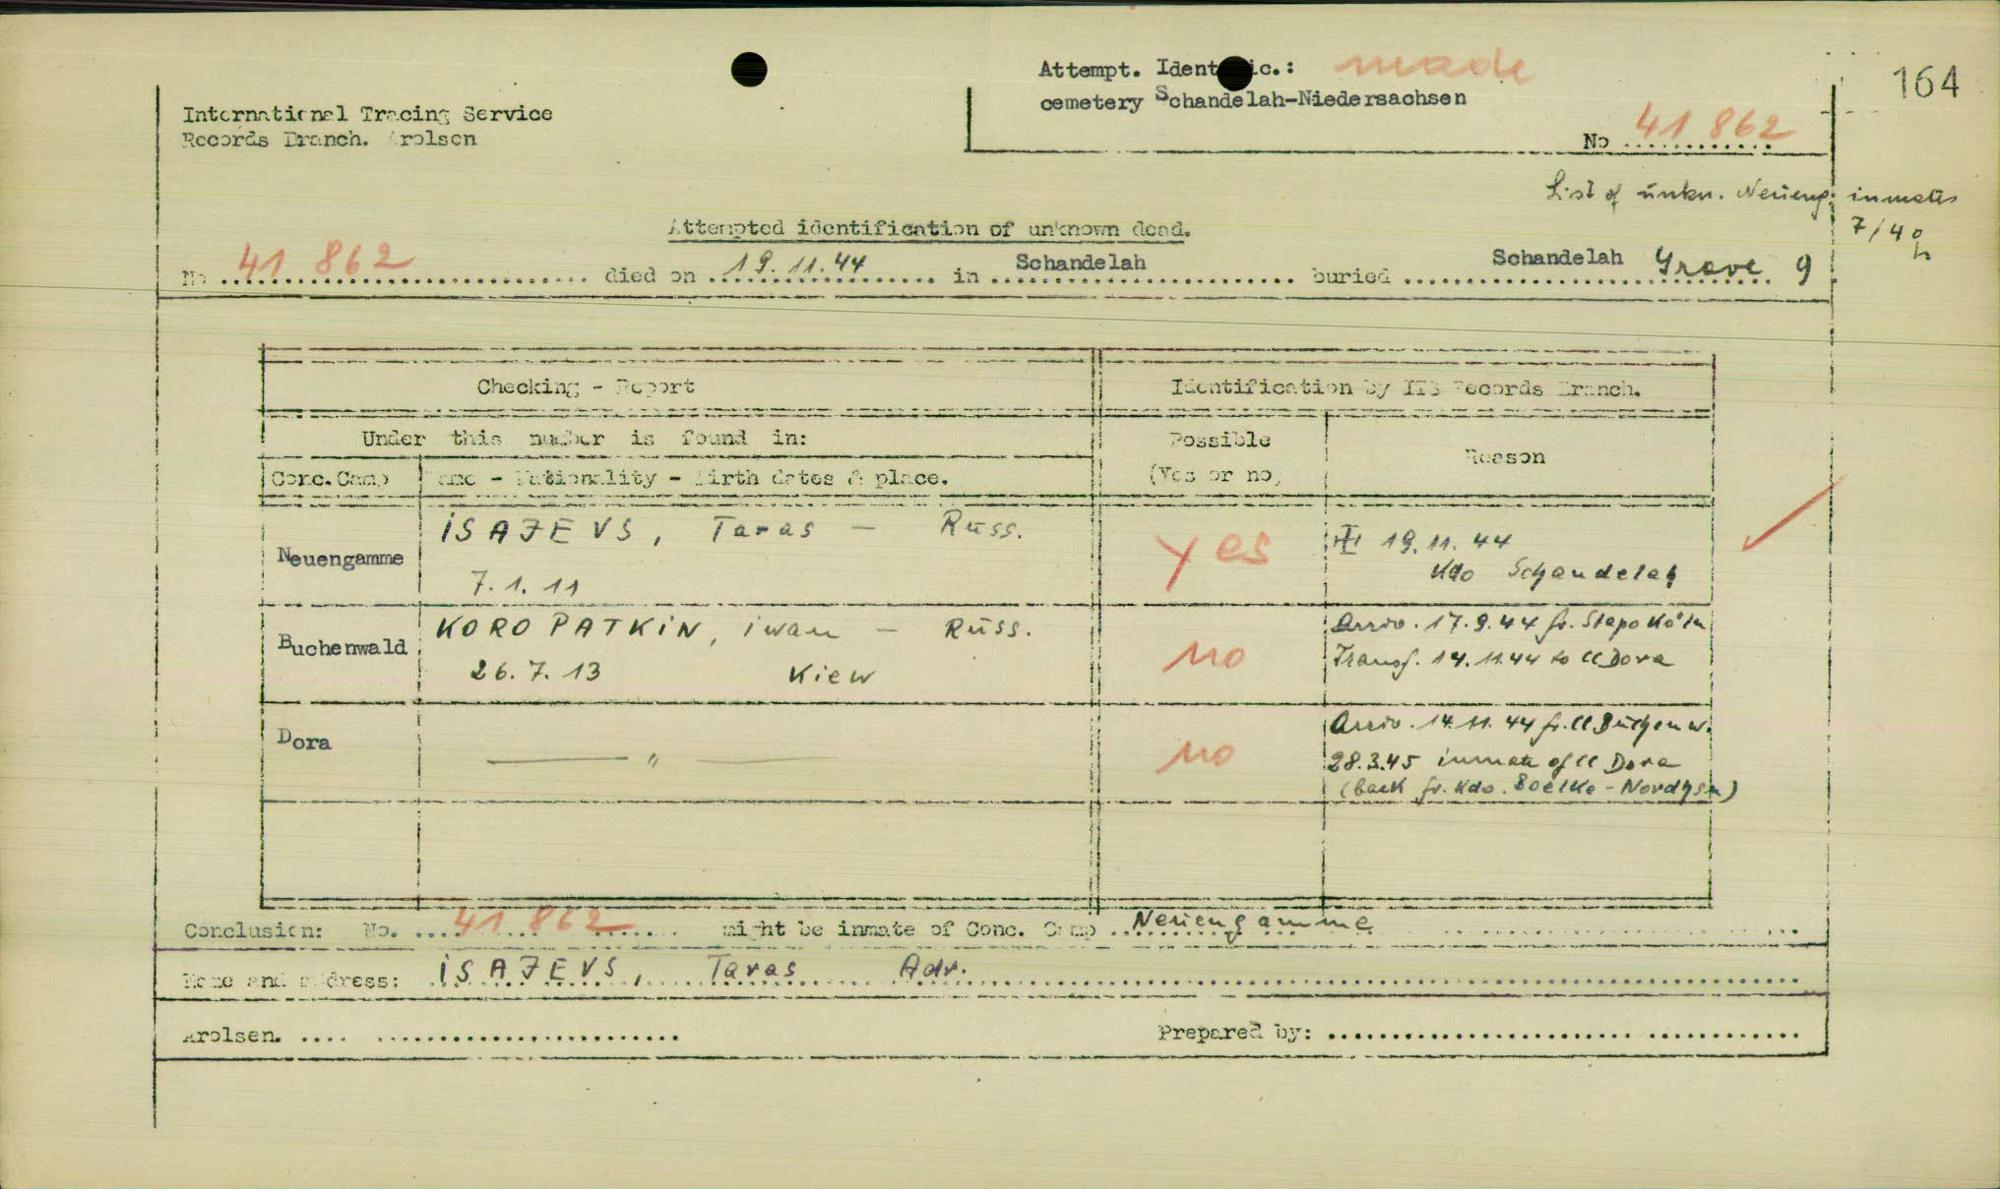 Attempt. Identific.: made
164
cemetery Schandelah-Niedersachsen
International Tracing Service
Records Branch. Arolsen
No 41 862
List of unkn. Neueng. inmates
7/4
Attempted identification of unknown dead.
No 41 862 died on 19.11.44 in Schandelah buried Schandelah Grave 9
Checking - Report
Identification by ITS Records Branch.
Under this number is found in:
Possible
(Yes or no)
Reason
Conc.Camp
Name - Nationality - Birth dates & place.
Neuengamme
ISAJEVS, Taras - Russ.
7.1.11
yes
19.11.44
Kdo Schandelah
Buchenwald
KOROPATKIN, iwan - Russ.
26.7.13 Kiew
no
Arriv. 17.9.44 fr. Stapo Köln
Transf. 14.11.44 to CC Dora
Dora
— " —
no
Arriv. 14.11.44 fr. CC Buchenw.
28.3.45 inmate of CC Dora
(back fr. Kdo. Boelke - Nordhsn)
Conclusion: No. 41 862 might be inmate of Conc. Camp Neuengamme
Name and address: ISAJEVS, Taras Adr.
Arolsen.
Prepared by: